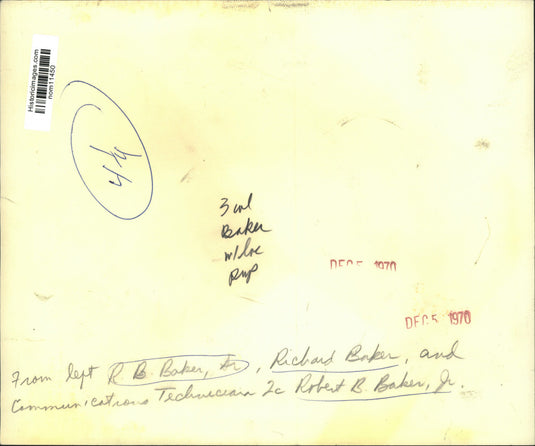 Historicimages.com
nom11450
4 1/4
3 col
Baker
w/loc
pmp
DEC 5 1970
DEC 5 1970
From left R B. Baker, Sr, Richard Baker, and
Communications Technician 2c Robert B. Baker, Jr.